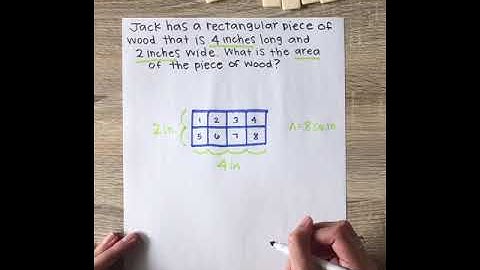 Jack has a rectangular piece of
wood that is 4 inches long and
2 inches wide. What is the area
of the piece of wood?
1 2 3 4
2 in
A=8 sq.in
5 6 7 8
4 in